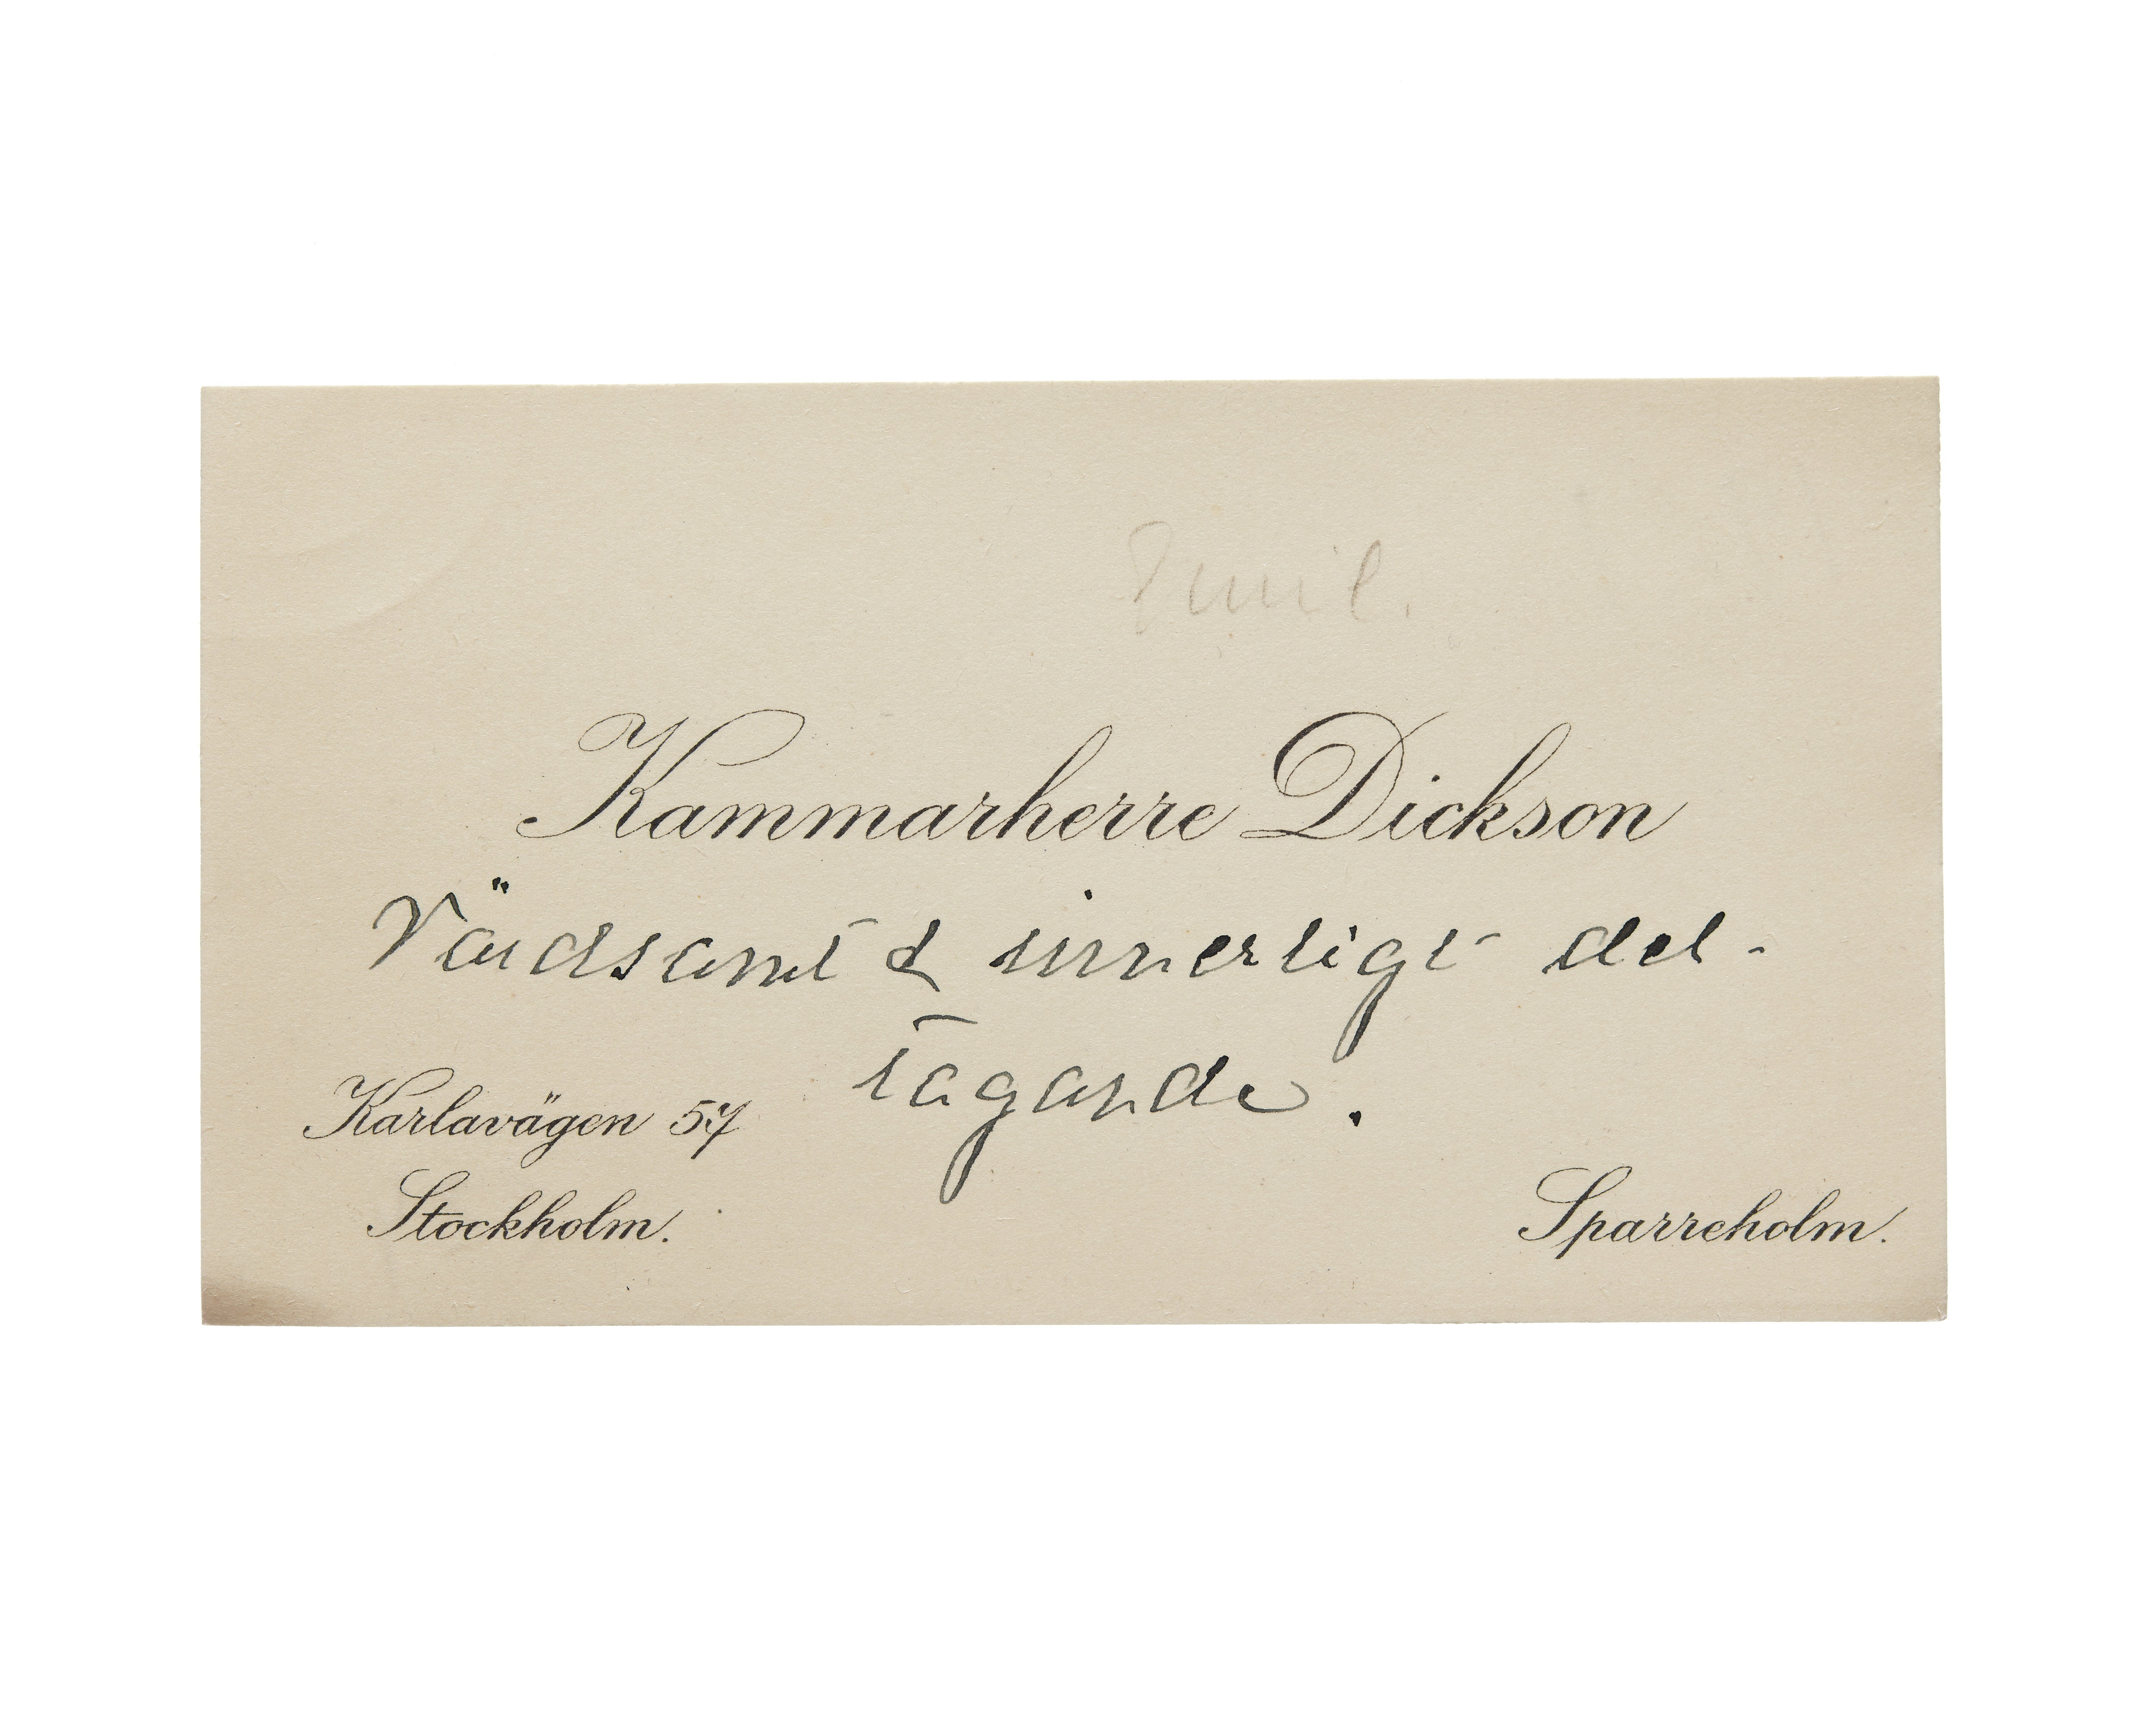 Emil.
Kammarherre Dickson
Värdsamt & innerligt del-
tagande.
Karlavägen 57
Stockholm.
Sparreholm.